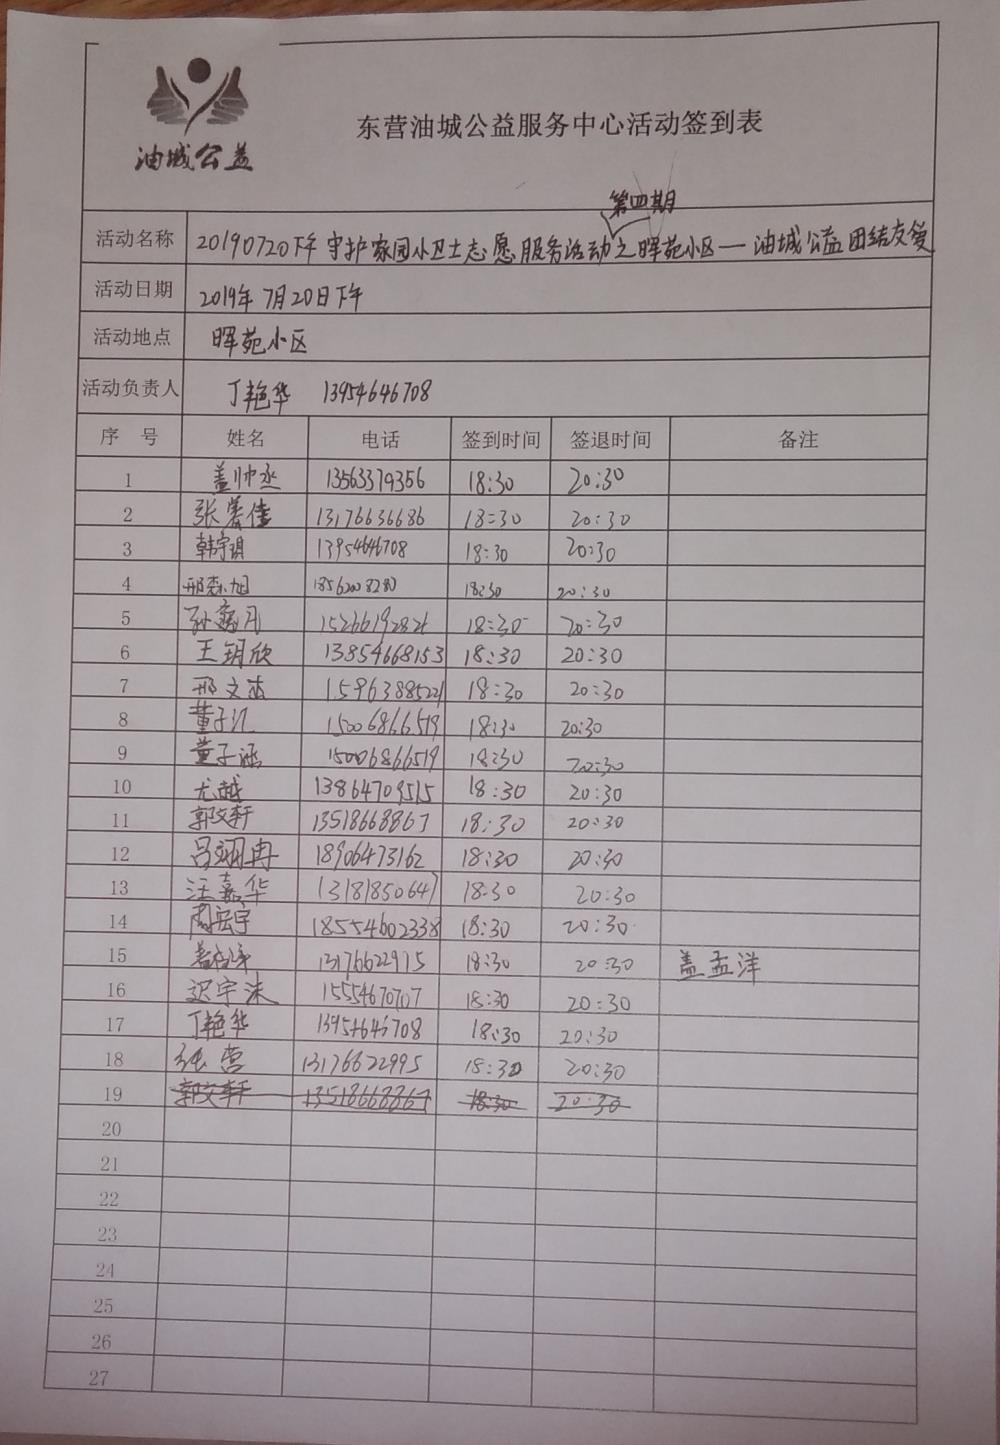 油城公益
东营油城公益服务中心活动签到表
第四期
活动名称 20190720下午守护家园小卫士志愿服务活动之晖苑小区—油城公益团结友爱
活动日期 2019年7月20日下午
活动地点 晖苑小区
活动负责人 丁艳华 13954646708
序号 姓名 电话 签到时间 签退时间 备注
1 盖帅丞 13563379356 18:30 20:30
2 张 佳 13176636686 18:30 20:30
3 韩宇琪 13954646708 18:30 20:30
4 邢 旭 18562008280 18:30 20:30
5 孙 月 18:30 20:30
6 王钥欣 13854668153 18:30 20:30
7 邢文 15963885221 18:30 20:30
8 董子汇 15006866519 18:30 20:30
9 董子涵 15006866519 18:30 20:30
10 尤越 13864709515 18:30 20:30
11 郭文轩 13518668867 18:30 20:30
12 吕翊冉 18906473162 18:30 20:30
13 汪嘉华 13181850647 18:30 20:30
14 周宏宇 18554602338 18:30 20:30
15 13176622915 18:30 20:30 盖孟洋
16 迟宇沫 15554670707 18:30 20:30
17 丁艳华 13954646708 18:30 20:30
18 张营 13176622995 18:30 20:30
19 郭文轩 13518668867 18:30 20:30
20
21
22
23
24
25
26
27